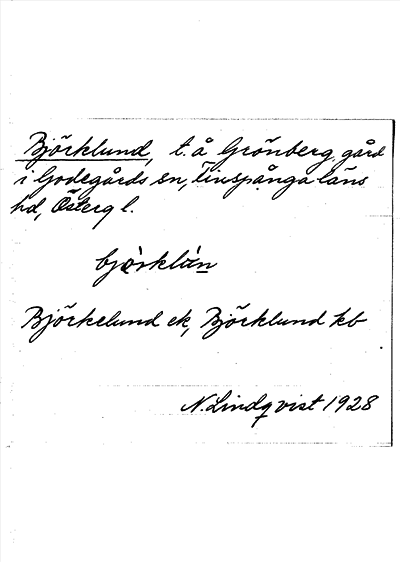 Björklund, t. å Grönberg, gård
i Godegårds sn, Finspånga läns
hd, Österg l.
bjö̀rklùn
Björkelund ek, Björklund kb
N. Lindqvist 1928